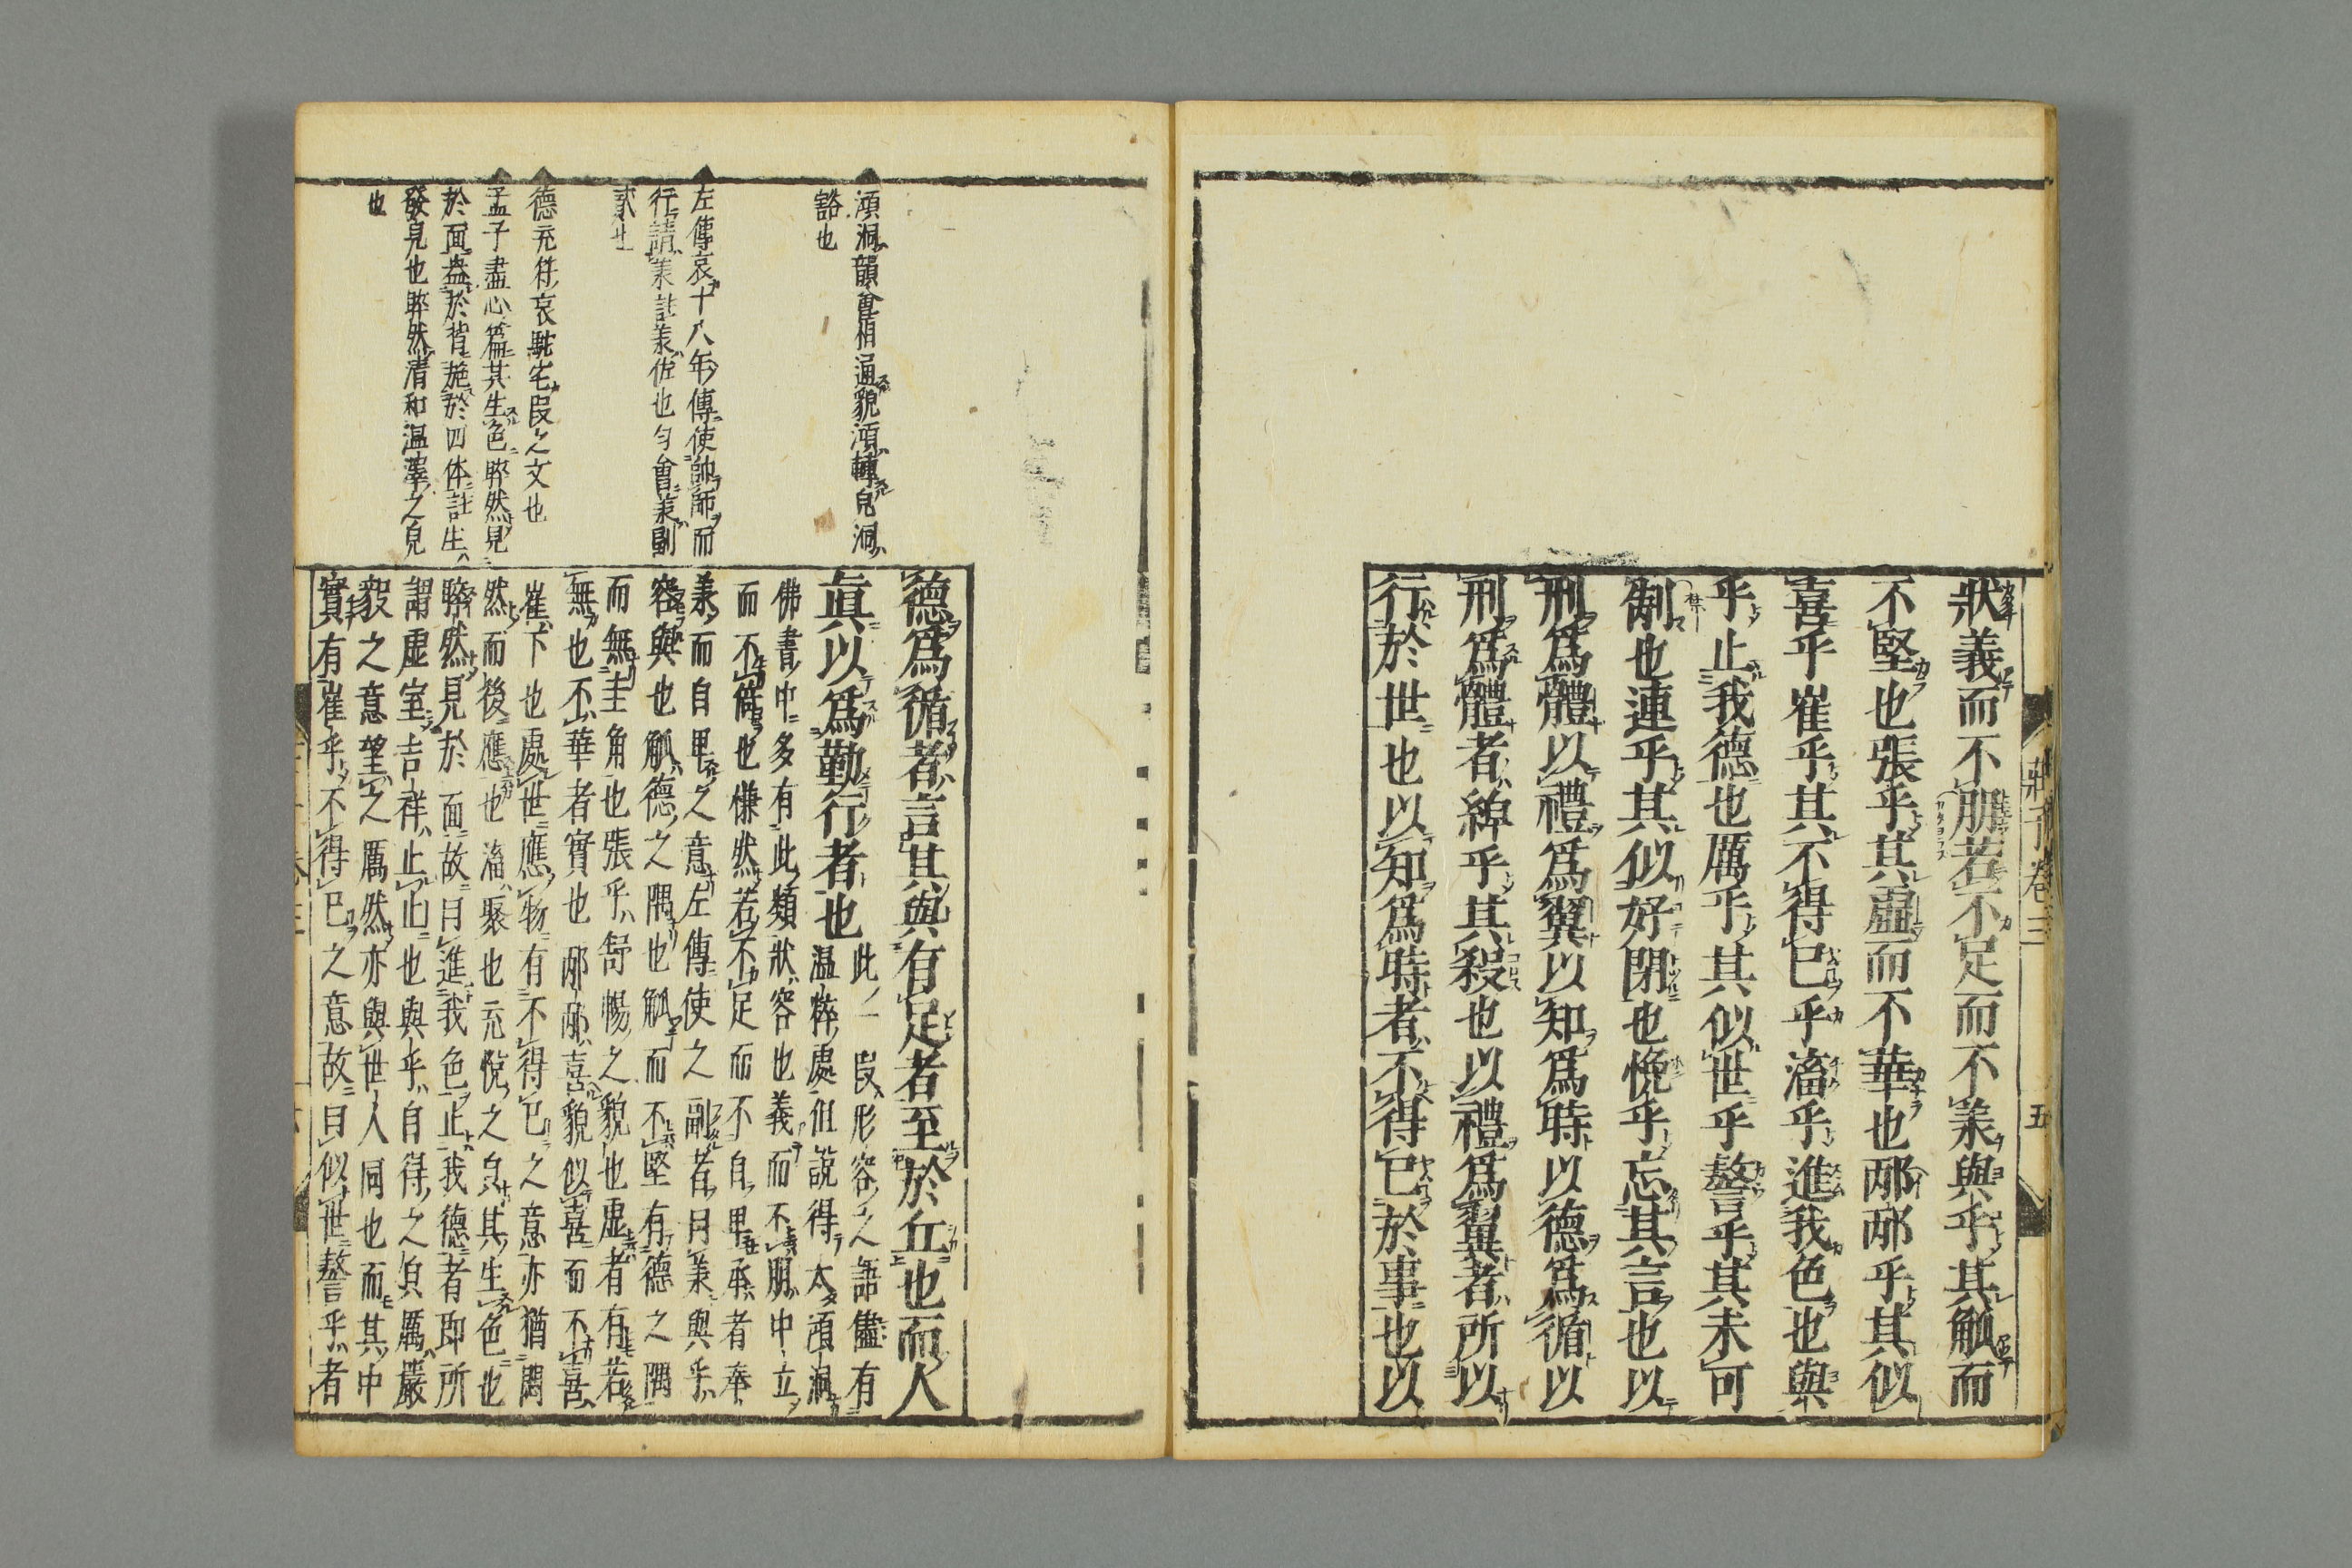 狀義而不朋若不足而不羕與乎其觚而
不堅也張乎其虛而不華也邴邴乎其似
喜乎崔乎其不得已乎滀乎進我色也與
乎止我德也厲乎其似世乎謷乎其未可
制也連乎其似好閉也悗乎忘其言也以
刑爲體以禮爲翼以知爲時以德爲循以
刑爲體者綽乎其殺也以禮爲翼者所以
行於世也以知爲時者不得已於事也以
莊子卷三
五
德爲循者言其與有足者至於丘也而人
眞以爲勤行者也此一段形容之語儘有
温粹處但說得太澒洞
佛書中多有此類狀容也義而不朋中立
而不倚也慊然若不足而不自卑羕者奉
羕而自卑之意左傳使之副者曰羕與乎
容與也觚德之隅也觚而不堅有德之隅
而無圭角也張乎舒暢之貌也虛者有若
無也不華者實也邴邴喜貌似喜而不喜
崔下也處世應物有不得已之意亦猶閒
然而後應也滀聚也充悅之皃其生色也
睟然見於面故曰進我色止我德者即所
謂虛室吉祥止止也與乎自得之皃厲嚴
毅之意望之厲然亦與世人同也而其中
實有崔乎不得已之意故曰似世謷乎者
澒洞韻會相通貌澒轉皃洞
谿也
左傳哀十八年傳使帥師而
行請羕註羕佐也匀會羕副
貳也
德充符哀駝它段之文也
孟子盡心篇其生色睟然見
於面盎於背施於四体註生
發見也睟然清和温澤之皃
也